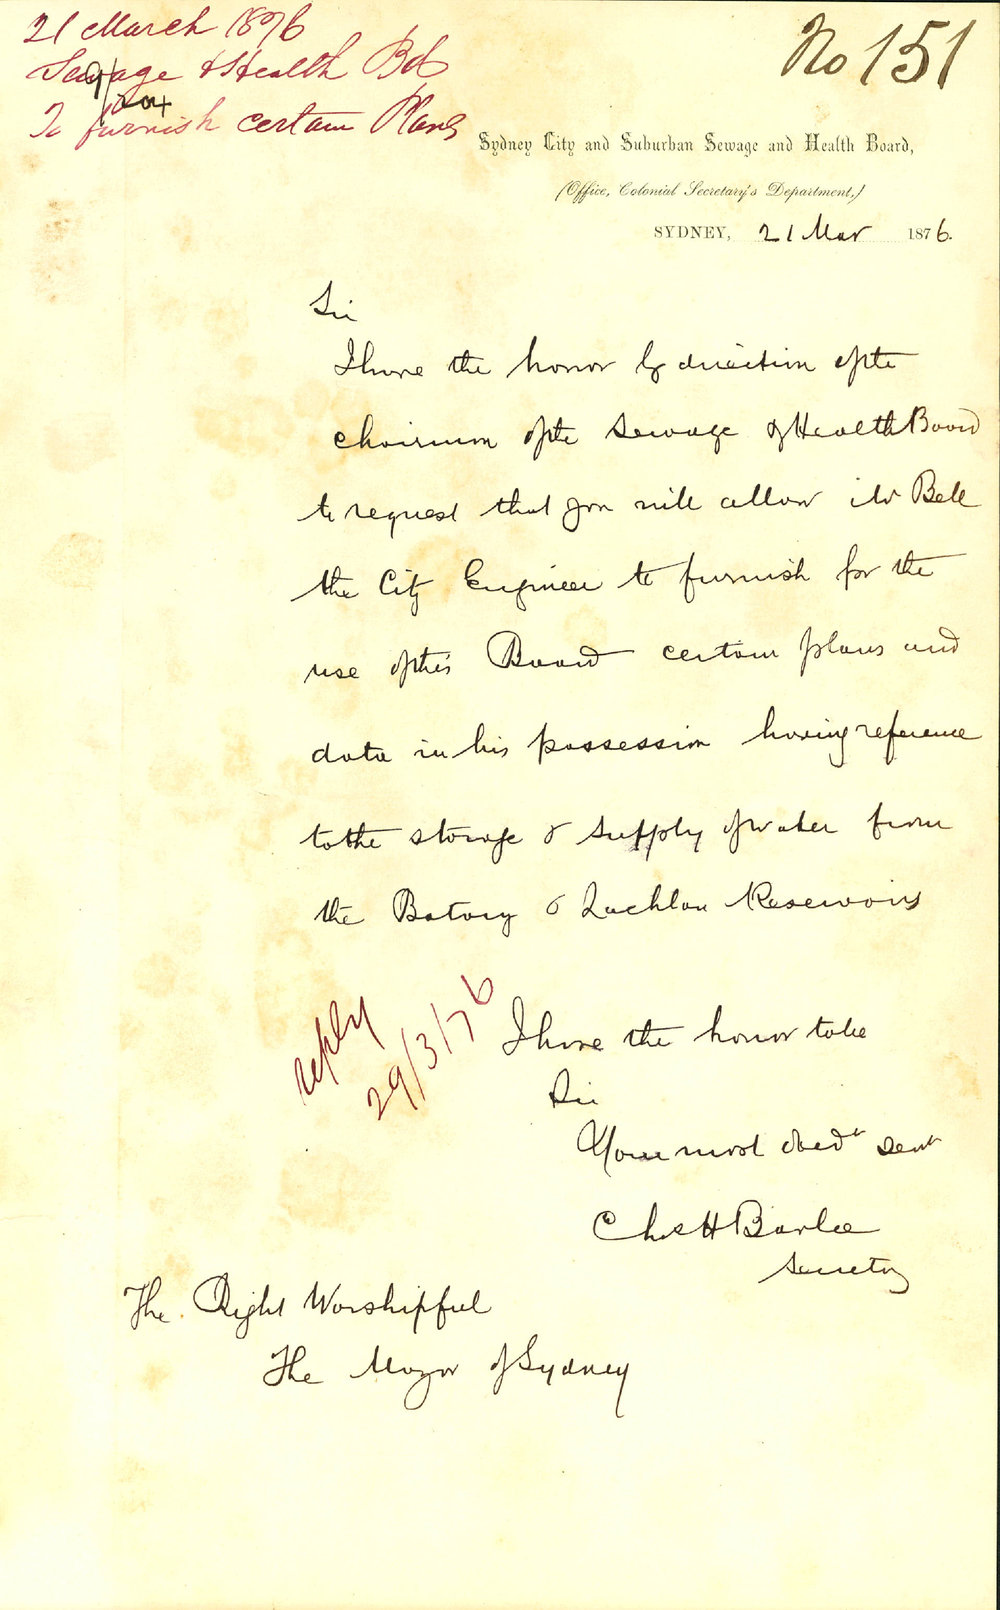 21 March 1876
Sewage & Health Bd
To furnish certain Plans
No 151
Sydney City and Suburban Sewage and Health Board,
(Office, Colonial Secretary's Department,)
SYDNEY, 21 Mar 1876.
Sir
I have the honor by direction of the
chairman of the Sewage & Health Board
to request that you will allow Mr Bell
the City Engineer to furnish for the
use of this Board certain plans and
data in his possession having reference
to the storage & supply of water from
the Botany & Lachlan Reservoirs
reply
29/3/76
I have the honor to be
Sir
Your most obedt servt
Chas H Barlee
Secretary
The Right Worshipful
The Mayor of Sydney